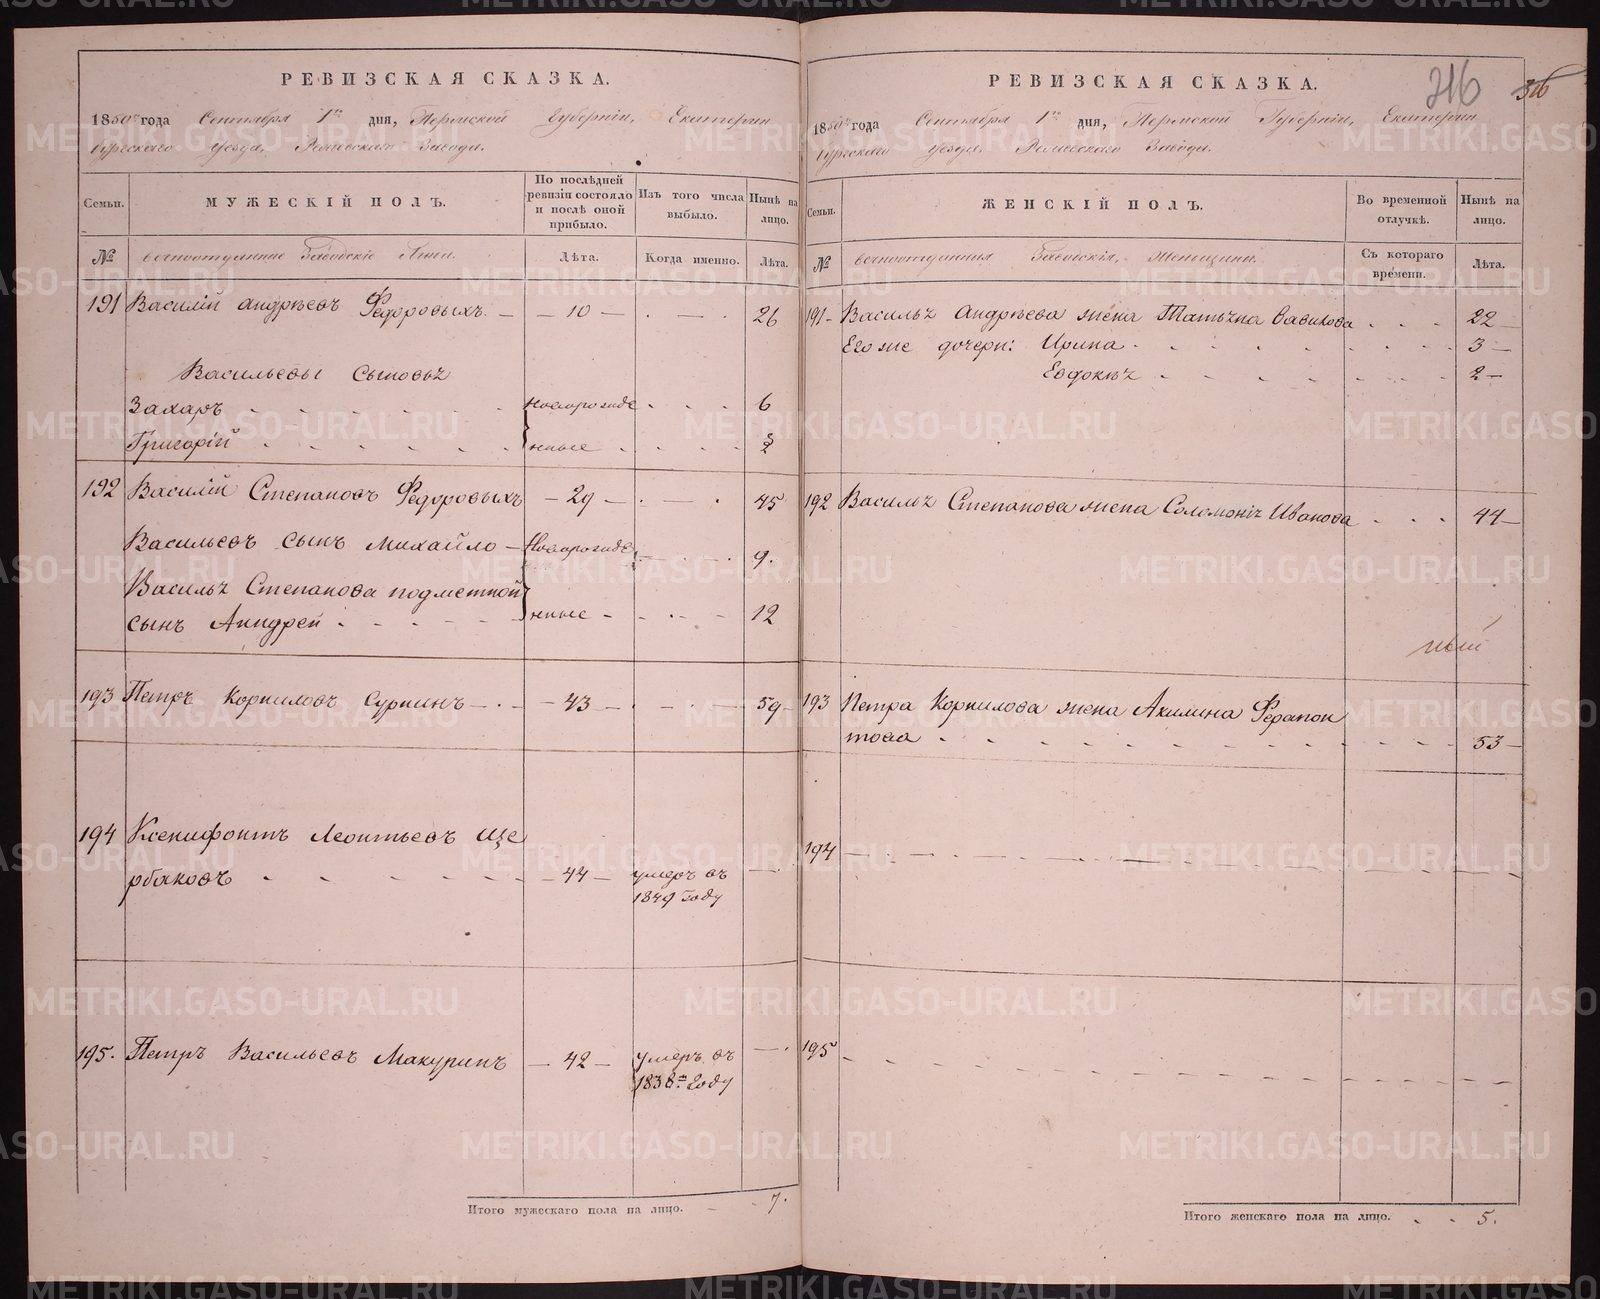 РЕВИЗСКАЯ СКАЗКА.
1850 года Сентября 1го дня, Пермской Губерніи, Екатерин
бургскаго уезда, Завода.
Семьи.
МУЖЕСКІЙ ПОЛЪ.
По послѣдней ревизіи состояло и послѣ оной прибыло.
Изъ того числа выбыло.
Нынѣ на лицо.
№
вечноотданные Заводскіе Люди.
Лѣта.
Когда именно.
Лѣта.
191 Василій Андрѣевъ Федоровыхъ. — 10 — 26
Васильевы сыновьѧ
Захаръ новорожде 6
Григорій нные
192 Василій Степановъ Федоровыхъ — 29 — 45
Васильевъ сынъ Михайло — Новорожде 9.
Василья Степанова подметной
сынъ Андрей нные 12
193 Петръ Корниловъ Сурнинъ — 43 — 59
194 Ксенифонтъ Леонтьевъ Ще
рбаковъ — 44 — умеръ въ —
1849 году
195. Петръ Васильевъ Макуринъ — 42 — умеръ въ —
1838м году
Итого мужескаго пола на лицо. 7.
РЕВИЗСКАЯ СКАЗКА.
316
36
1850 года Сентября 1го дня, Пермской Губерніи, Екатерин
бургскаго уезда, Завода.
Семьи.
ЖЕНСКІЙ ПОЛЪ.
Во временной отлучкѣ.
Нынѣ на лицо.
№
вечноотданныя Заводскія, женщины.
Съ котораго времени.
Лѣта.
191 Василья Андрѣева жена Татьяна Савинова 22
Его же дочери: Ирина 3
Евдокья 2
192 Василья Степанова жена Соломонія Иванова 44
ный
193 Петра Корнилова жена Акилина Ферапон
това 53
194
195
Итого женскаго пола на лицо. 5.
METRIKI.GASO-URAL.RU